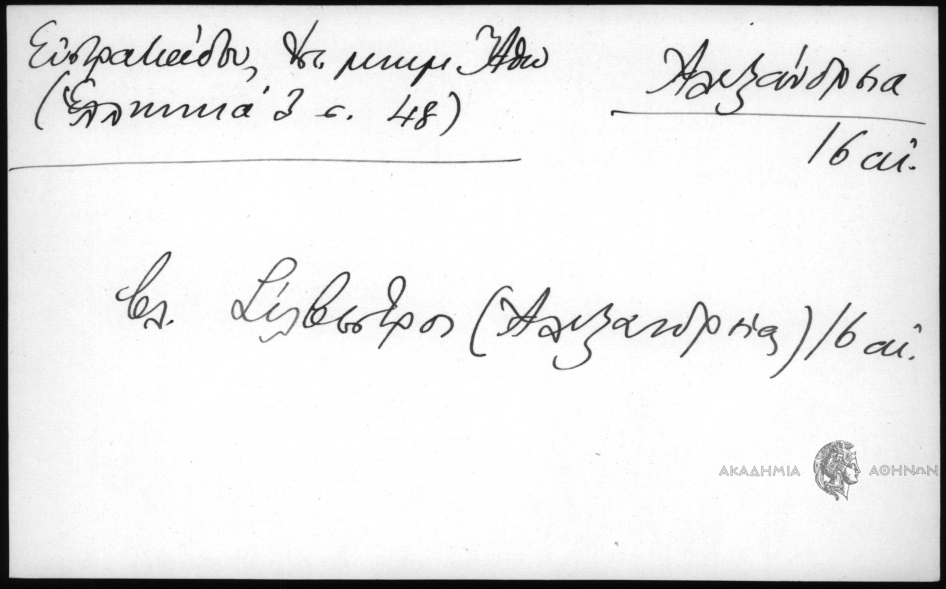 Εὐστρατιάδου, Ἱστ. μνημ. Ἄθω
(Ἑλληνικά 3 σ. 48)
Ἀλεξάνδρεια
16 αἰ.
βλ. Σίλβεστρος (Ἀλεξανδρείας) 16 αἰ.
ΑΚΑΔΗΜΙΑ ΑΘΗΝΩΝ